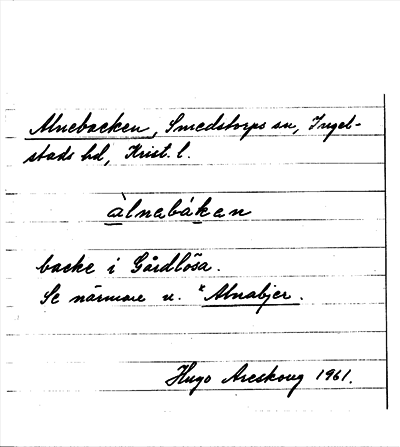 Alnebacken, Smedstorps sn, Ingel-
stads hd, Krist. l.
àlnebákan
backe i Gårdlösa.
Se närmare u. *Alnabjer.
Hugo Areskoug 1961.